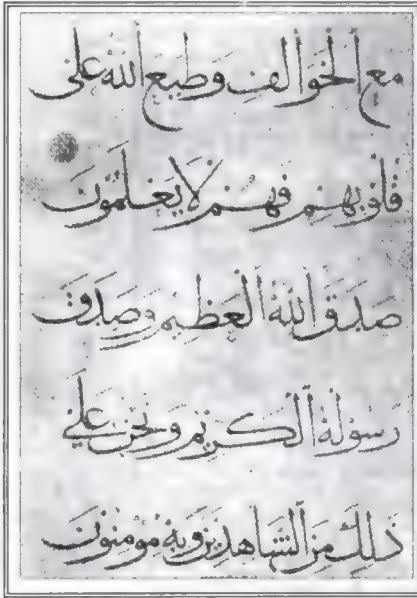 مع الخوالف وطبع الله على
قلوبهم فهم لا يعلمون
صدق الله العظيم وصدق
رسوله الكريم ونحن على
ذلك من الشاهدين وبه مومنون